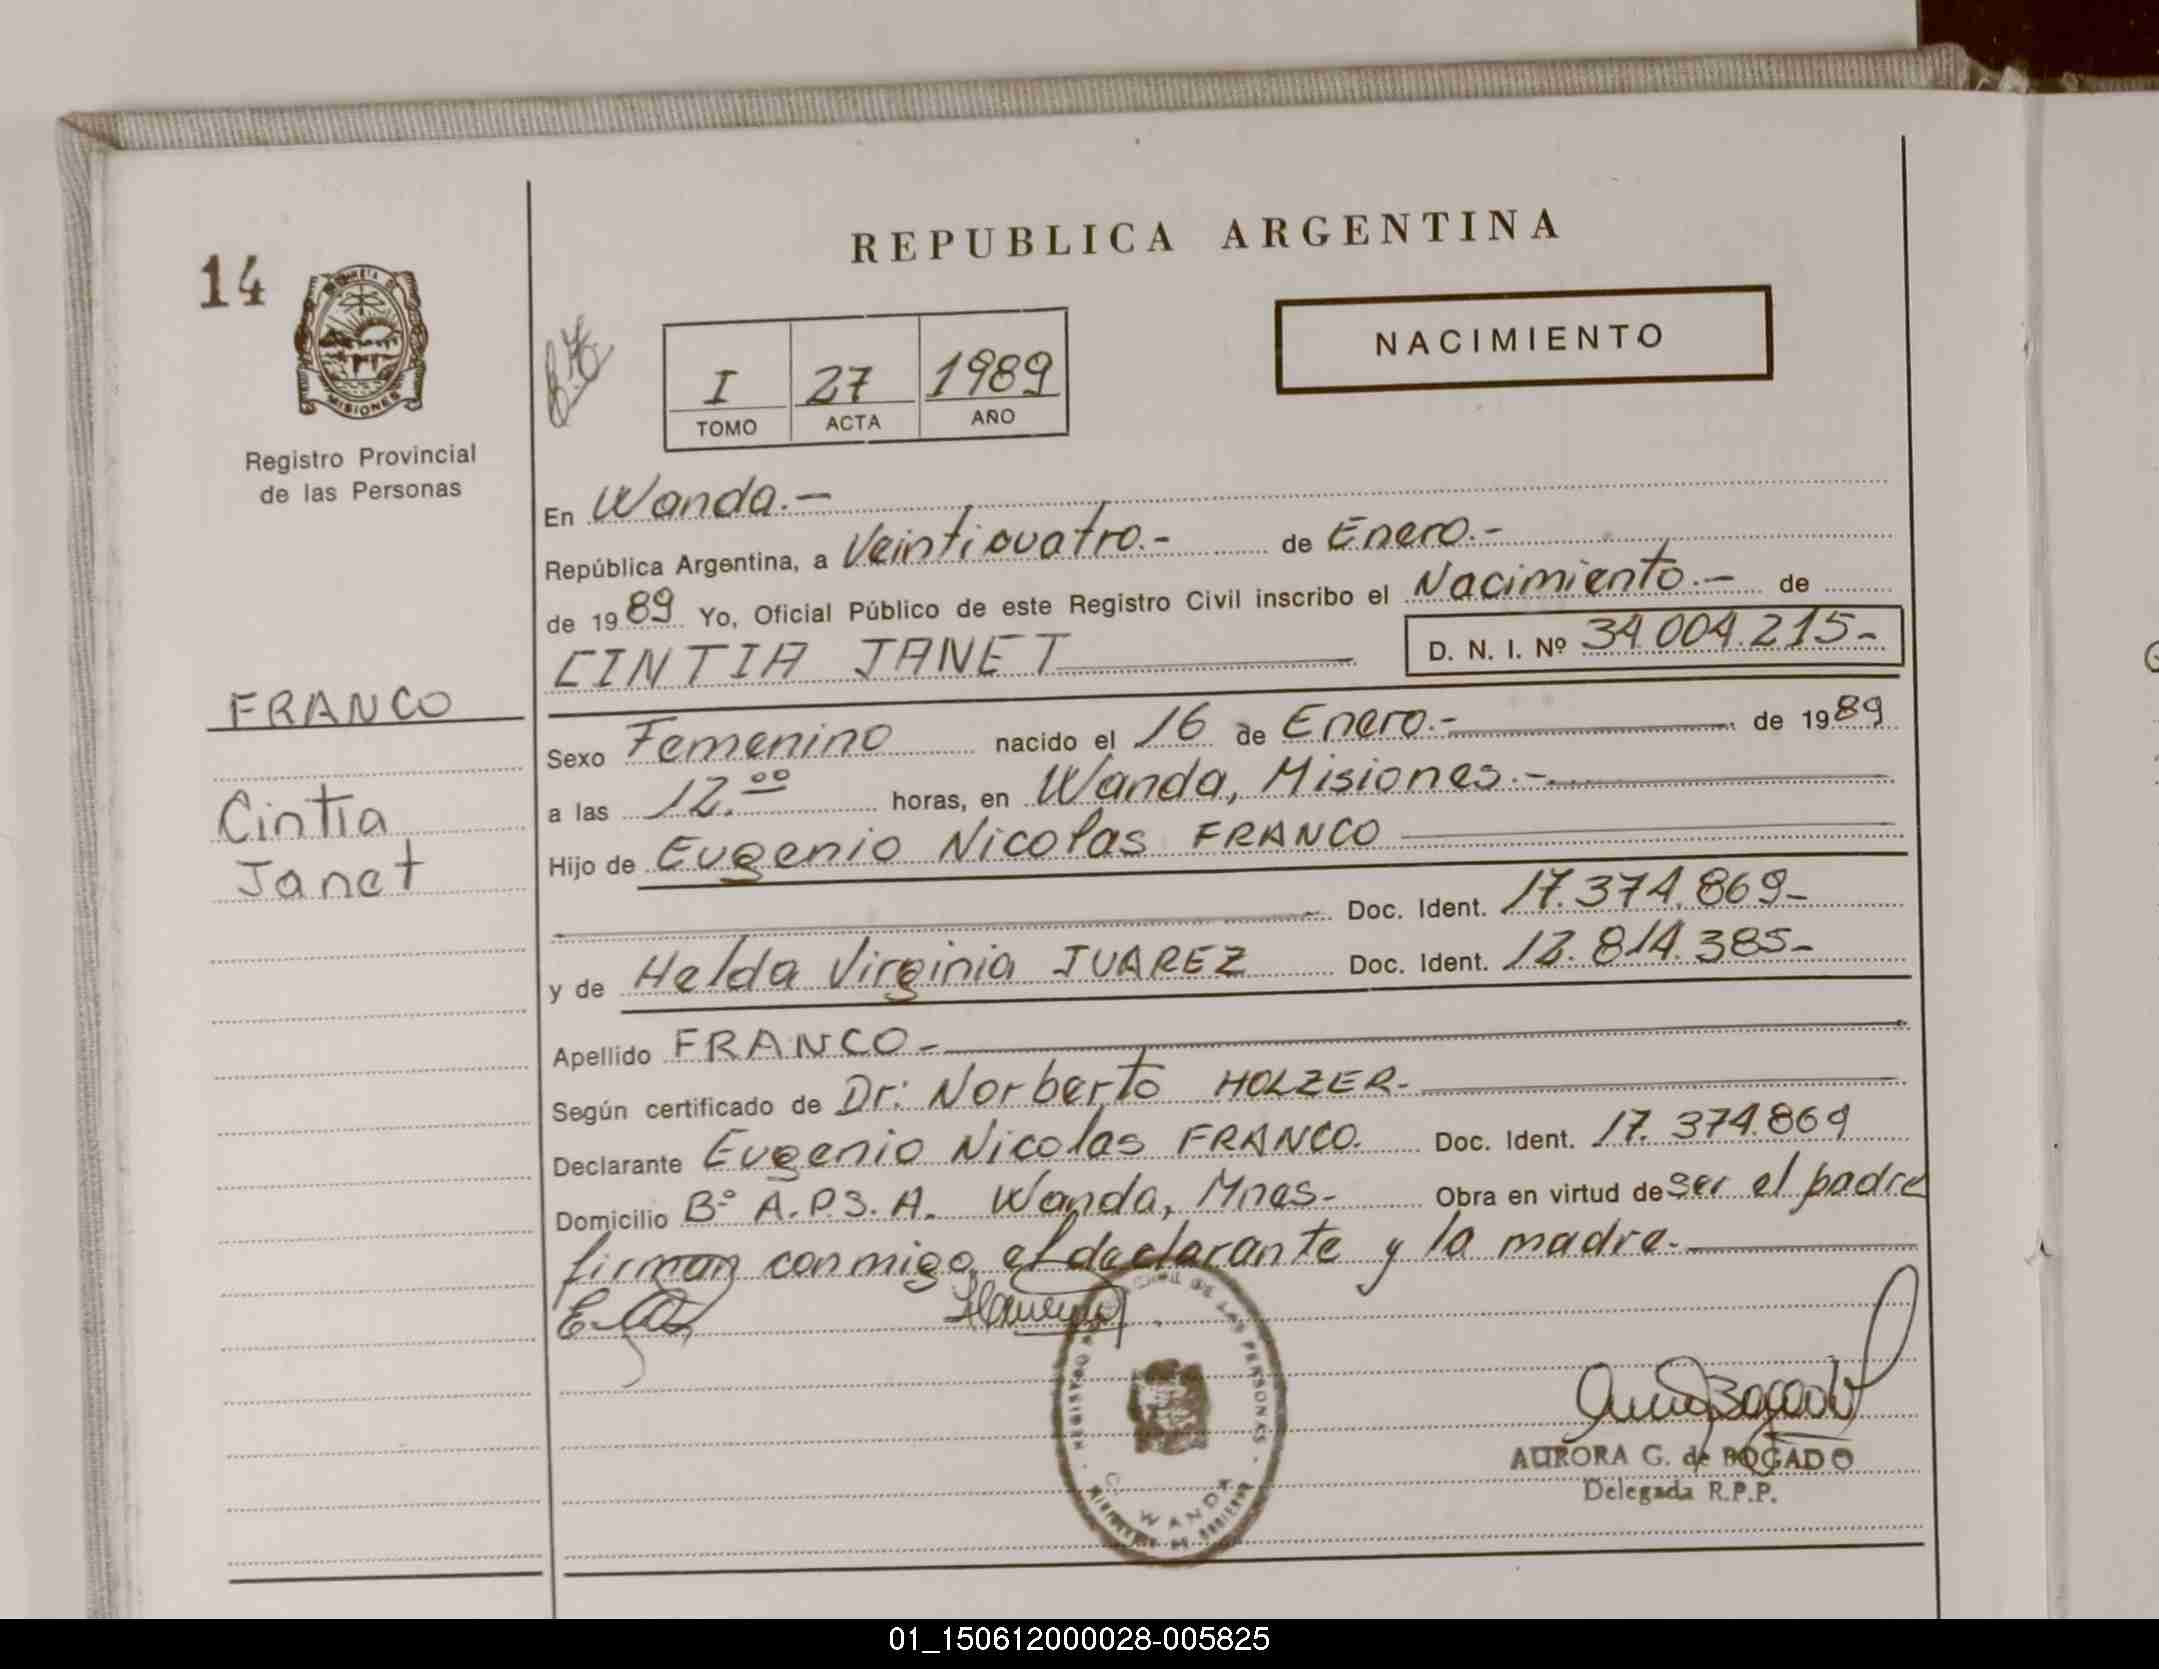 REPUBLICA ARGENTINA
14
MISIONES
Registro Provincial
de las Personas
NACIMIENTO
I 27 1989
TOMO ACTA AÑO
En Wanda.-
República Argentina, a Veinticuatro.- de Enero.-
de 1989 Yo, Oficial Público de este Registro Civil inscribo el Nacimiento.- de
CINTIA JANET D. N. I. Nº 34.004.215-
FRANCO
Cintia
Janet
Sexo Femenino nacido el 16 de Enero.- de 1989
a las 12.00 horas, en Wanda, Misiones.-
Hijo de Eugenio Nicolas FRANCO
Doc. Ident. 17.374.869-
y de Helda Virginia JUAREZ Doc. Ident. 12.814.385-
Apellido FRANCO-
Según certificado de Dr: Norberto HOLZER-
Declarante Eugenio Nicolas FRANCO. Doc. Ident. 17.374.869
Domicilio Bº A.P.S.A. Wanda, Mnes- Obra en virtud de ser el padre
firman conmigo el declarante y la madre.-
REGISTRO CIVIL DE LAS PERSONAS
WANDA
AURORA G. de BOGADO
Delegada R.P.P.
01_150612000028-005825